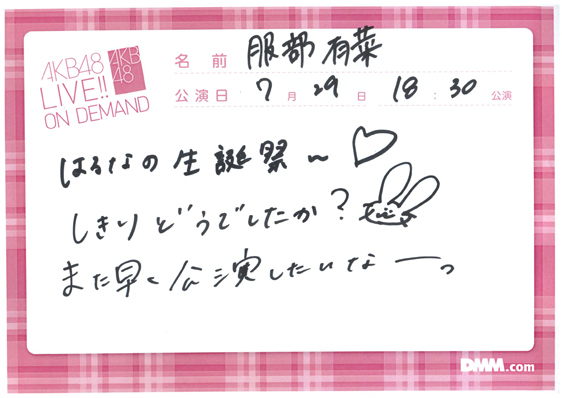 AKB48
LIVE!!
ON DEMAND
AKB
48
名前 服部有菜
公演日 7月29日 18:30公演
はるなの生誕祭〜♡
しきりどうでしたか？
また早く公演したいなーっ
DMM.com